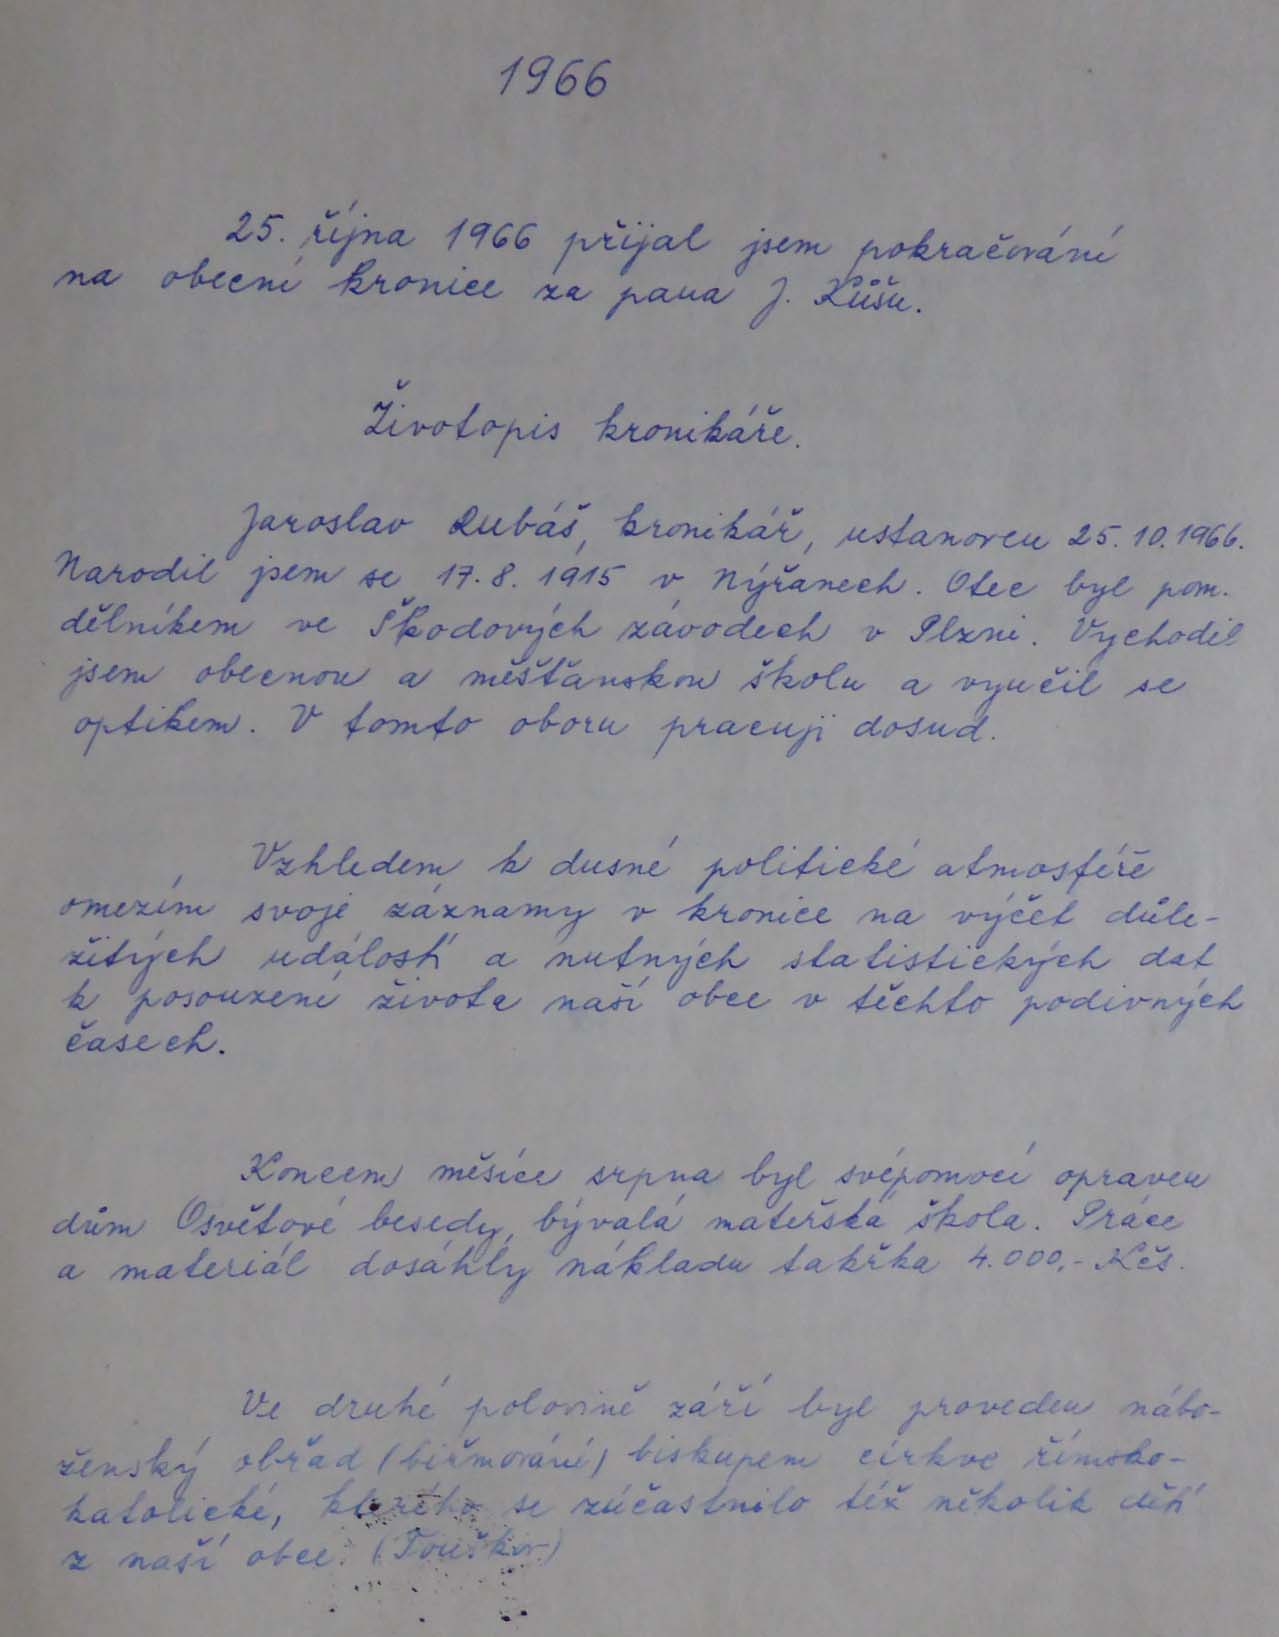 1966
25. října 1966 přijal jsem pokračování
na obecní kronice za pana J. Kůšu.
Životopis kronikáře.
Jaroslav Lubáš, kronikář, ustanoven 25.10.1966.
Narodil jsem se 17.8.1915 v Nýřanech. Otec byl pom.
dělníkem ve Škodových závodech v Plzni. Vychodil
jsem obecnou a měšťanskou školu a vyučil se
optikem. V tomto oboru pracuji dosud.
Vzhledem k dusné politické atmosféře
omezím svoje záznamy v kronice na výčet důle-
žitých událostí a nutných statistických dat
k posouzení života naší obce v těchto podivných
časech.
Koncem měsíce srpna byl svépomocí opraven
dům Osvětové besedy, bývalá mateřská škola. Práce
a materiál dosáhly nákladu takřka 4.000,- Kčs.
Ve druhé polovině září byl proveden nábo-
ženský obřad (biřmování) biskupem církve římsko-
katolické, kterého se zúčastnilo též několik dětí
z naší obce. (Touškov)